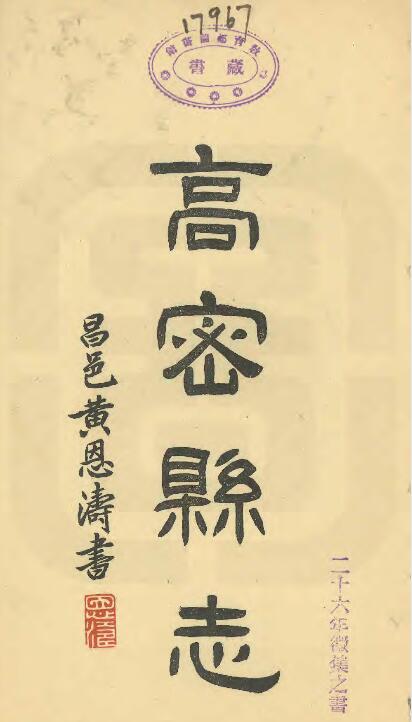 17967
藏書
高密縣志
昌邑黃恩濤書
二十六年徵集之書